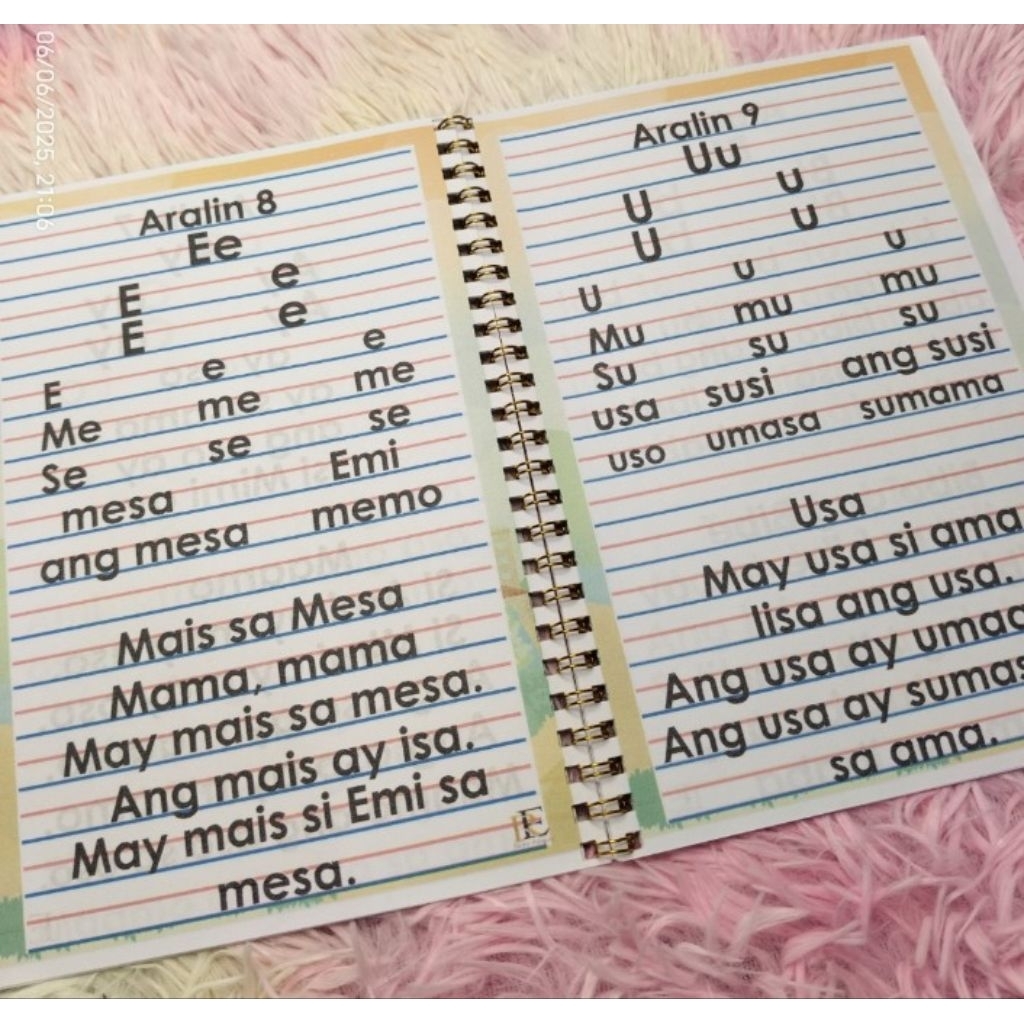 06/06/2025, 21:06
Aralin 8
Ee
E e
E e
E e e
Me me me
Se se se
mesa Emi
ang mesa memo
Mais sa Mesa
Mama, mama
May mais sa mesa.
Ang mais ay isa.
May mais si Emi sa
mesa.
Aralin 9
Uu
U u
U u
U u u
Mu mu mu
Su su su
usa susi ang susi
uso umasa sumama
Usa
May usa si ama
Iisa ang usa.
Ang usa ay
Ang usa ay
sa ama.